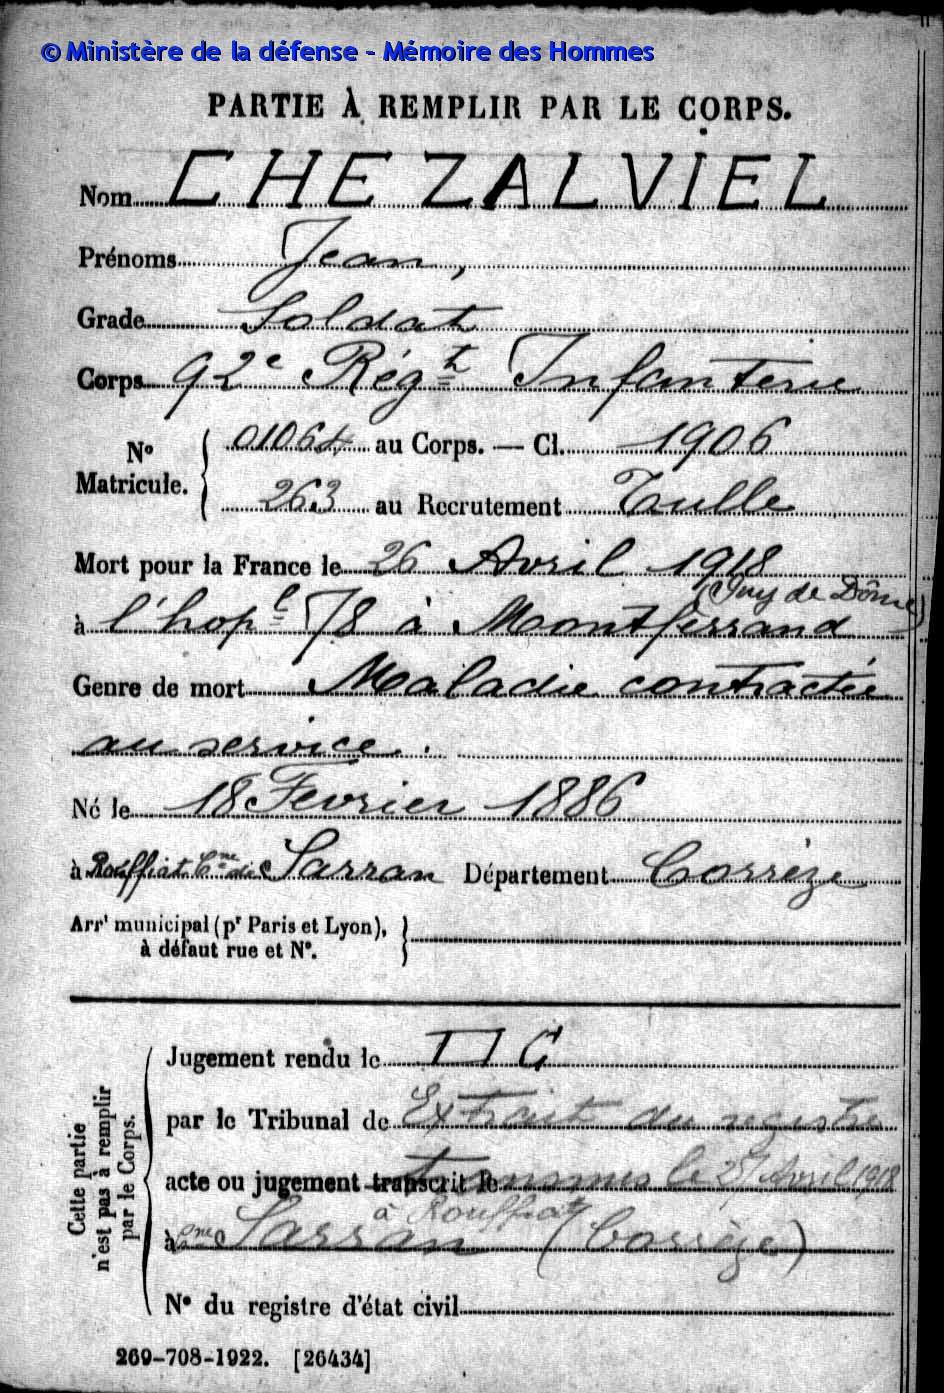 © Ministère de la défense - Mémoire des Hommes
PARTIE À REMPLIR PAR LE CORPS.
Nom CHEZALVIEL
Prénoms Jean,
Grade Soldat
Corps 92e Régt Infanterie
No Matricule. { 01064 au Corps. — Cl. 1906
263 au Recrutement Tulle
Mort pour la France le 26 Avril 1918
(Puy de Dôme)
à l'hopl 78 à Montferrand
Genre de mort Maladie contractée
au service.
Né le 18 Fevrier 1886
à Rouffiat Cne de Sarran Département Corrèze
Arrt municipal (pr Paris et Lyon),
à défaut rue et No.
Cette partie
n'est pas à remplir
par le Corps.
Jugement rendu le
par le Tribunal de Extrait du registre
acte ou jugement transcrit le transmis le 27 Avril 1918
à Rouffiat
à cne Sarran (Corrèze)
No du registre d'état civil
269-708-1922. [26434]